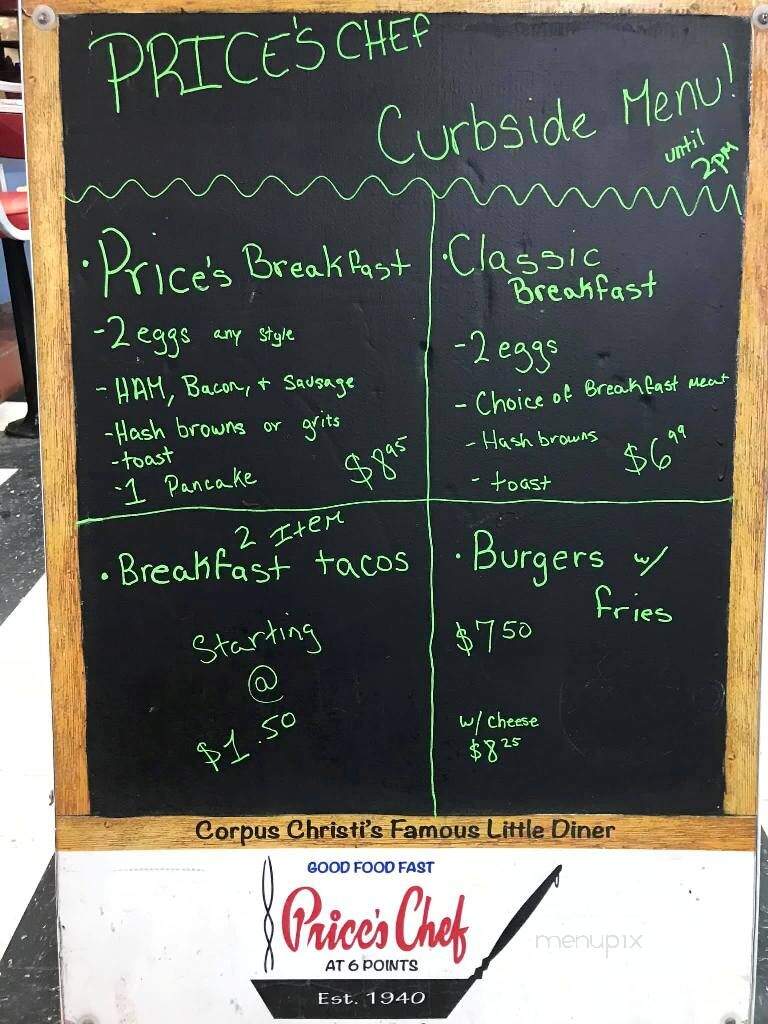 PRICE'S CHEF
Curbside Menu!
until
2pm
·Price's Breakfast
-2 eggs any style
-HAM, Bacon, + Sausage
-Hash browns or grits
-toast
-1 Pancake
$8.95
·Classic
Breakfast
-2 eggs
-Choice of Breakfast meat
-Hash browns
-toast
$6.99
2 Item
·Breakfast tacos
Starting
@
$1.50
·Burgers w/
fries
$7.50
w/ cheese
$8.25
Corpus Christi's Famous Little Diner
GOOD FOOD FAST
Price's Chef
AT 6 POINTS
Est. 1940
menupix